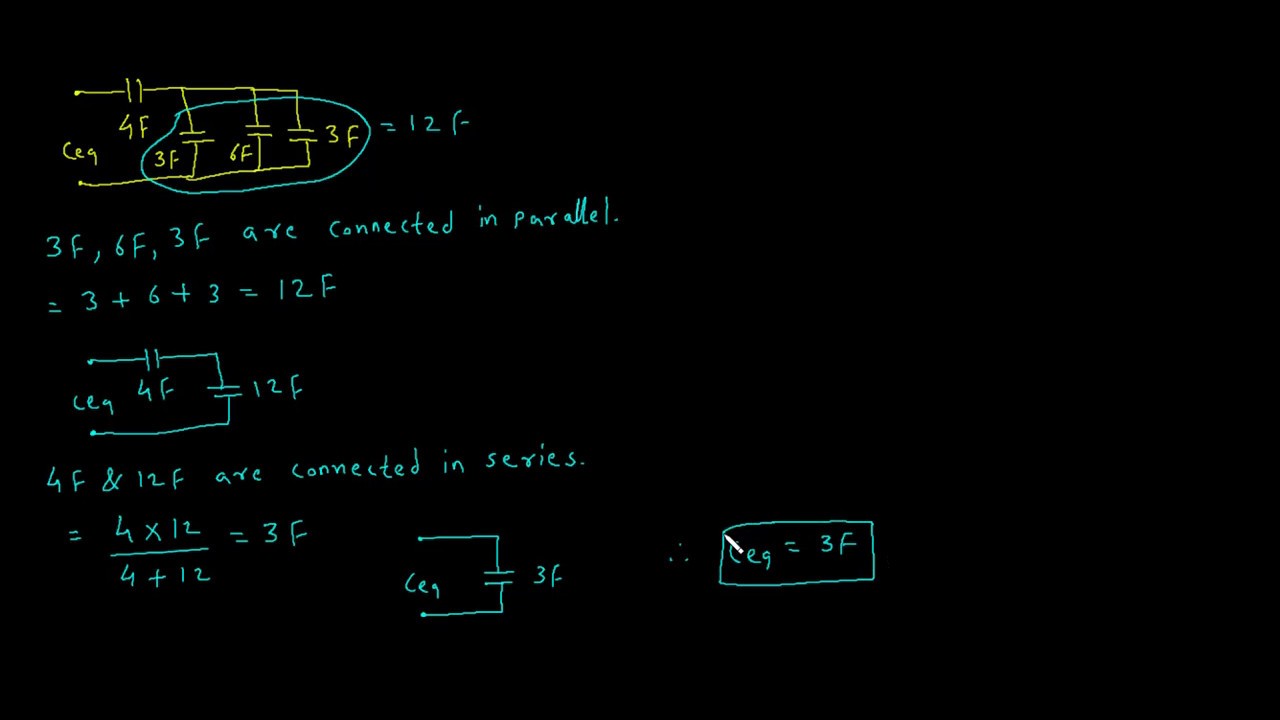 4F
Ceq
3F
6F
3F
= 12F
3F, 6F, 3F are connected in parallel.
= 3 + 6 + 3 = 12F
Ceq
4F
12F
4F & 12F are connected in series.
= 4 x 12 / 4 + 12 = 3F
Ceq
3F
∴ Ceq = 3F